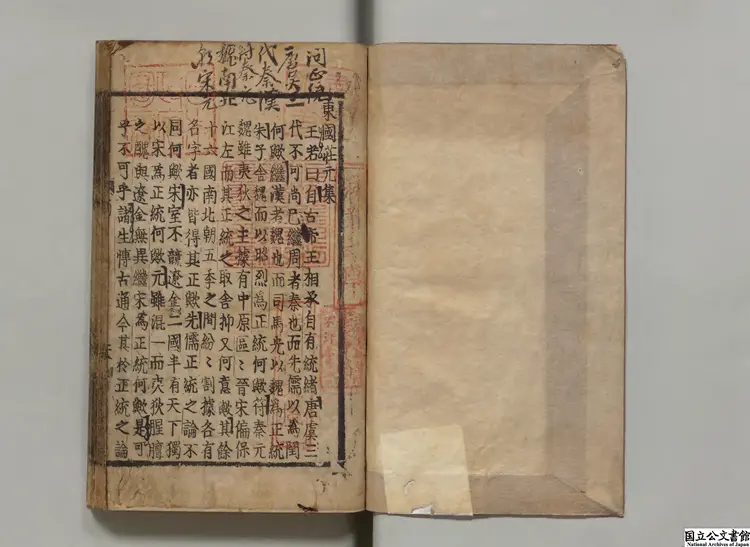 問正統
唐虞三
代秦漢
魏南北
宋元
東國莊元集
王若曰自古帝王相承自有統緒唐虞三
代不可尚已繼周者秦也而先儒以為閏
何歟繼漢者魏也而司馬光以魏為正統
朱子舍魏而以昭烈為正統何歟苻秦元
魏雖夷狄之主據有中原區〻晉宋偏保
江左而其正統之取舍抑又何意歟其餘
十六國南北朝五季之間紛〻割據各有
名字者亦皆得其正歟先儒正統之論不
同何歟宋室不競遼金二國半有天下獨
以宋為正統何歟元雖混一而戎狄腥膻
之醜與遼金無異繼宋為正統何歟是可
乎不可乎諸生博古通今其於正統之論
国立公文書館
National Archives of Japan